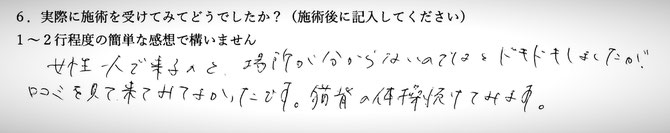 6．実際に施術を受けてみてどうでしたか？（施術後に記入してください）
1～2行程度の簡単な感想で構いません
女性一人で来るのと、場所が分からないのではとドキドキしましたが
口コミを見て来てみてよかったです。猫背の体操続けてみます。